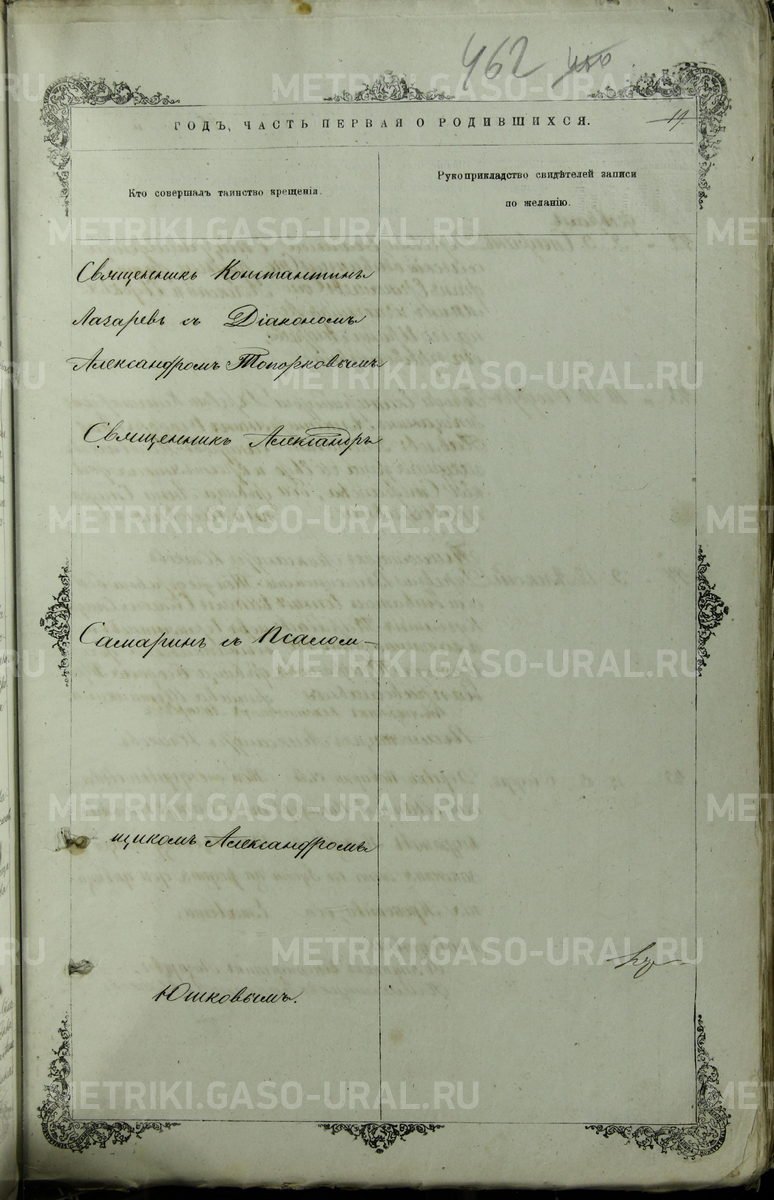 462
ГОДЪ, ЧАСТЬ ПЕРВАЯ О РОДИВШИХСЯ.
Кто совершалъ таинство крещенія.
Рукоприкладство свидѣтелей записи
по желанію.
Священникъ Константинъ
Лазаревъ съ Діакономъ
Александромъ Топорковымъ
Священникъ Александръ
Самаринъ съ Псалом-
щикомъ Александромъ
Юшковымъ.
METRIKI.GASO-URAL.RU